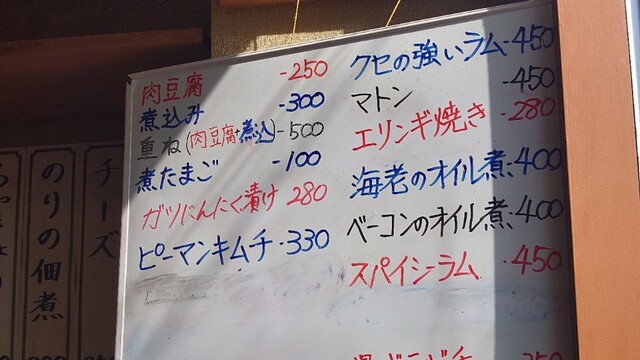 肉豆腐 -250
煮込み -300
重ね(肉豆腐+煮込)-500
煮たまご -100
ガツにんにく漬け 280
ピーマンキムチ -330
クセの強いラム -450
マトン -450
エリンギ焼き -280
海老のオイル煮 -400
ベーコンのオイル煮 -400
スパイシーラム -450
チーズ
のりの佃煮